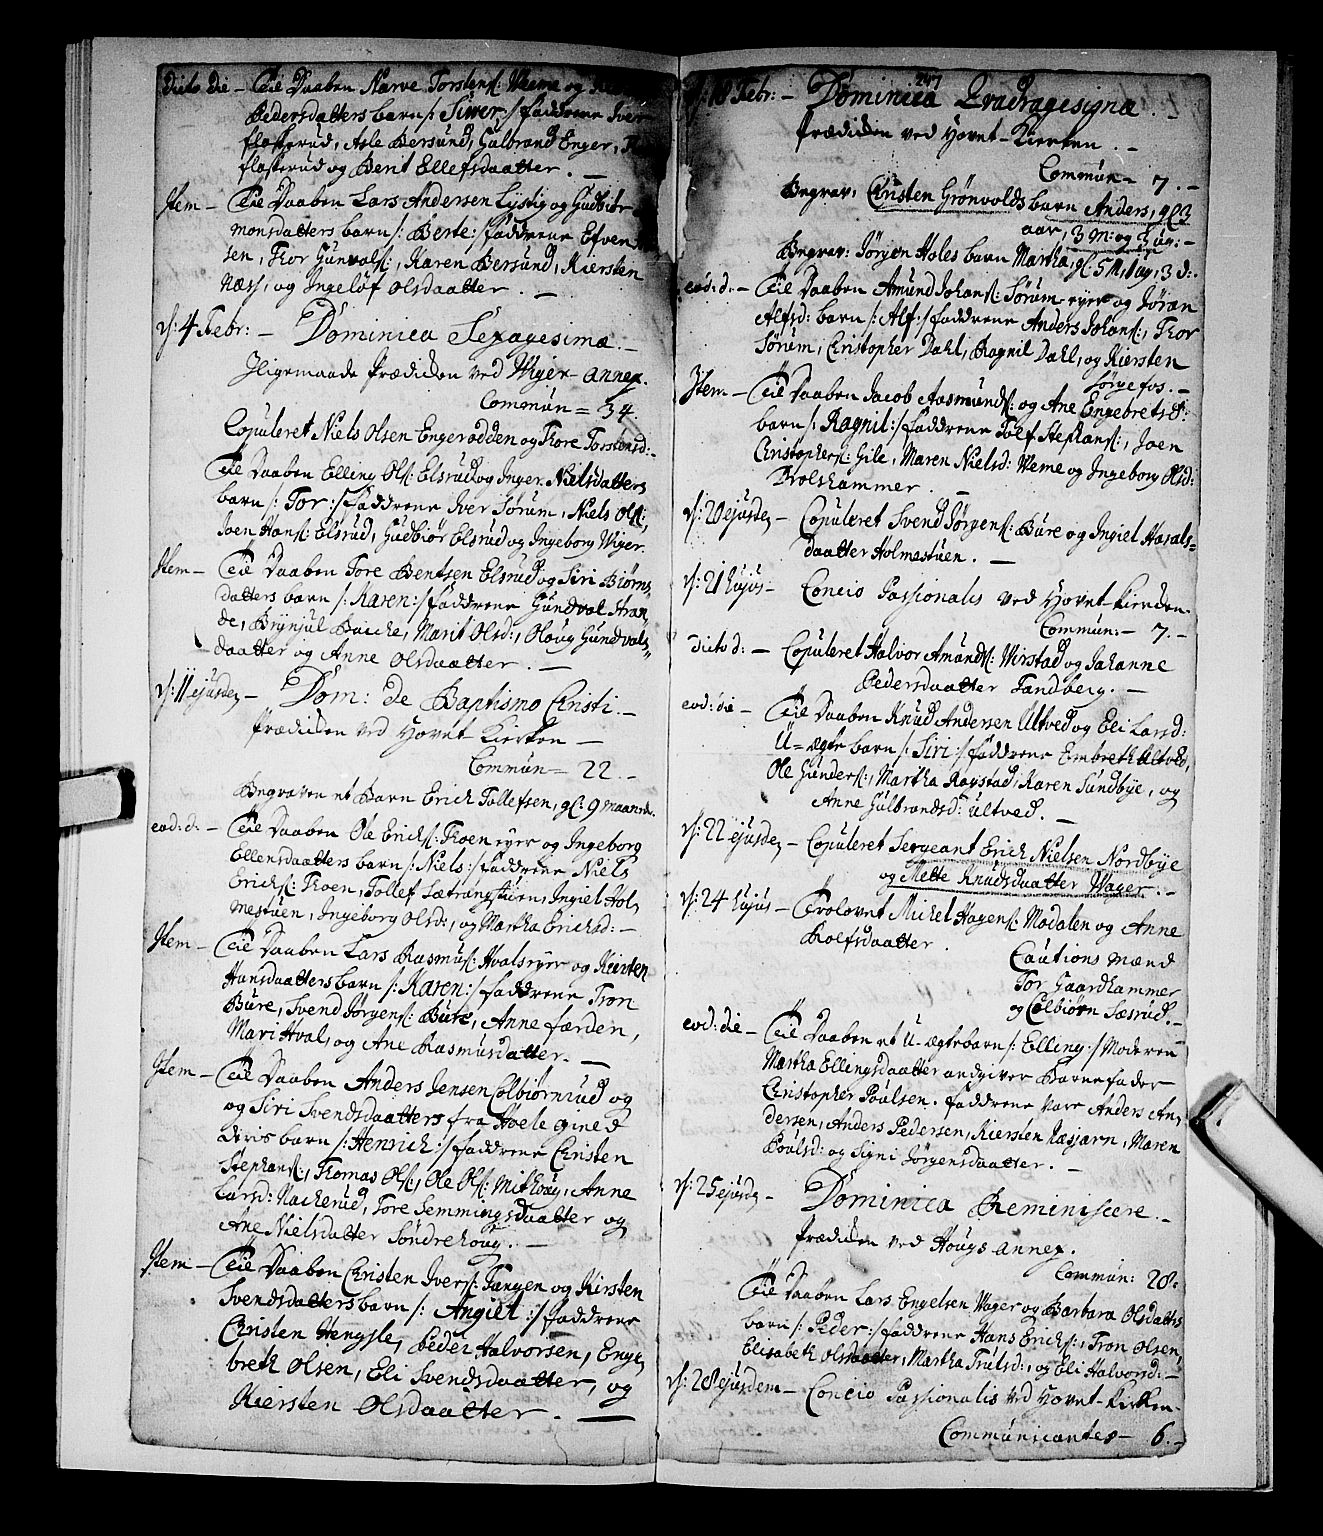 dicto die – Ceie Daaben Narve Torstens: Weme og
Pedersdatters barn /: Siwer :/ faddrene Iver
flaskerud, Asle Bersund, Gulbrand Enger,
flaskerud og Berit Ellefsdaatter. –
Item – Ceie Daaben Lars Andersen Lystig og Gudbiør
monsdatters barn /: Berte :/ faddrene Efven
sen, Thor Gunvals:, Karen Bersund, Kiersten
Næss, og Ingeløf Olsdaatter. –
d: 4 Febr: – Dominica Sexagesima. –
Iligemaade Prædicken ved Wiger annex.
Commun = 34.
Copuleret Niels Olsen Engerødden og Thore Torstensd: –
Ceie Daaben Elling Ols: Elsrud og Inger Nielsdatters
barn /: Tor :/ faddrene Iver Sørum, Niels Ols:,
Joen Hans: Elsrud, Gudbiør Elsrud og Ingeborg Wiger.
Item – Ceie Daaben Tore Bentsen Elsrud og Siri Biørns
datters barn /: Karen :/ faddrene Gundval
de, Brynjul Baiche, Marit Olsd:, Oloug Gundvals
daatter og Anne Olsdaatter. –
d: 11 ejusdem – Dom: de Baptismo Christi. –
Prædicken ved Hovet Kierken –
Commun = 22. –
Begraven et Barn Erich Tollefsen, gl: 9 maaneder.
eod: d: – Ceie Daaben Ole Erichs: Thoen eyer og Ingeborg
Ellensdaatters barn /: Niels :/ faddrene Niels
Erichs: Thoen, Tollef Sætrangstuen, Ingiel Hol,
mestuen, Ingeborg Olsd:, og Martha Erichsd: –
Item – Ceie Daaben Lars Rasmus: Hvals eyer og Kiersten
Hansdaatters barn /: Karen :/ faddrene Tron
Bure, Svend Jørgens: Bure, Anne færden,
Mari Hval, og Ane Rasmusdatter. –
Item – Ceie Daaben Anders Jensen Colbiørnrud og
og Siri Svendsdaatters fra Hoele gined
deris barn /: Henrich :/ faddrene Christen
Stephans:, Thomas Ols:, Ole Ols: Mithoug, Anne
Larsd: Nackerud, Tore Semmingsdaatter og
Ane Nielsdatter Søndrehoug. –
Item – Ceie Daaben Christen Ivers: Tangen og Kirsten
Svendsdatters barn /: Angiet :/ faddrene
Christen Hengsle, Peder Halvorsen, Enge,
breth Olsen, Eli Svendsdaatter, og
Kiersten Olsdaatter. –
247
d: 18 Febr: – Dominica Qvadragesigna. –
Prædicken ved Hovet-Kierken. –
Commun = 7. –
Begrav: Christen Grønvolds barn Anders, gl 3
aar, 3 M: og 3 ug: –
Begrav: Jørgen Holes barn Martha, gl 5 M, 1 ug, 3 d:
eod: d: – Ceie Daaben Amund Johans: Sørum eyer og Jøran
Alfsd: barn /: Alf :/ faddrene Anders Johans:, Thor
Sørum, Christopher Dahl, Ragnil Dahl, og Kiersten
Sørgefos. –
Item – Ceie Daaben Jacob Aasmunds: og Ane Engebretsd:
barn /: Ragnil :/ faddrene Tolf Stephans:, Joen
Christophers: Gile, Maren Nielsd: Weme og Ingeborg Olsd:
Trolshammer. –
d: 20 ejusdem – Copuleret Svend Jørgens: Bure og Ingiel Harals=
daatter Holmestuen. –
d: 21 hujus – Concio Passionalis ved Hovet kierken.
Commun: – 7. –
dicto d: – Copuleret Halvor Amunds: Wirstad og Johanne
Pedersdaatter Tandberg. –
eod: die – Ceie Daaben Knud Andersen Ultved og Eli Larsd:
U = ægte barn /: Siri :/ faddrene Embreth Ultved,
Ole Gunders:, Martha Røystad, Karen Sundbye, og
Anne Gulbrandsd: ultved. –
d: 22 ejusdem – Copuleret Sergeant Erich Nielsen Nordbye
og Mette Knudsdaatter Wager. –
d: 24 hujus – Trolovet Michel Hagens: Modalen og Anne
Rolfsdaatter.
Cautions mænd
Tor Gaardhammer
og Colbiørn Sæsrud. –
eod: die – Ceie Daaben et U-ægtebarn /: Elling :/ Moderen
Martha Ellingsdaatter andgiver Barnefader
Christopher Poulsen. faddrene vare Anders An,
dersen, Anders Pedersen, Kiersten Næsjarn, Maren
Poulsd: og Signi Jørgensdaatter. –
d: 25 ejusdem – Dominica Reminiscere. –
Prædicken ved Hougs annex.
Commun: 28:
Ceie Daaben Lars Engelsen Wager og Barbara Olsdatters
barn /: Peder :/ faddrene Hans Erichs:, Tron Olsen,
Elisabeth Olsdaatter, Martha Trulsd:, og Eli Halvorsd: –
d: 28 ejusdem – Concio Passionalis ved Hovet-kirken.
Communicantes – 6. –